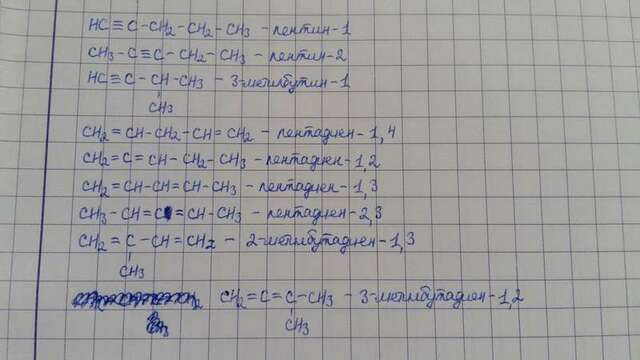 HC≡C-CH₂-CH₂-CH₃ - пентин-1
CH₃-C≡C-CH₂-CH₃ - пентин-2
HC≡C-CH-CH₃ - 3-метилбутин-1
CH₃
CH₂=CH-CH₂-CH=CH₂ - пентадиен-1,4
CH₂=C=CH-CH₂-CH₃ - пентадиен-1,2
CH₂=CH-CH=CH-CH₃ - пентадиен-1,3
CH₃-CH=C=CH-CH₃ - пентадиен-2,3
CH₂=C-CH=CH₂ - 2-метилбутадиен-1,3
CH₃
CH₂=C=C-CH₃ - 3-метилбутадиен-1,2
CH₃